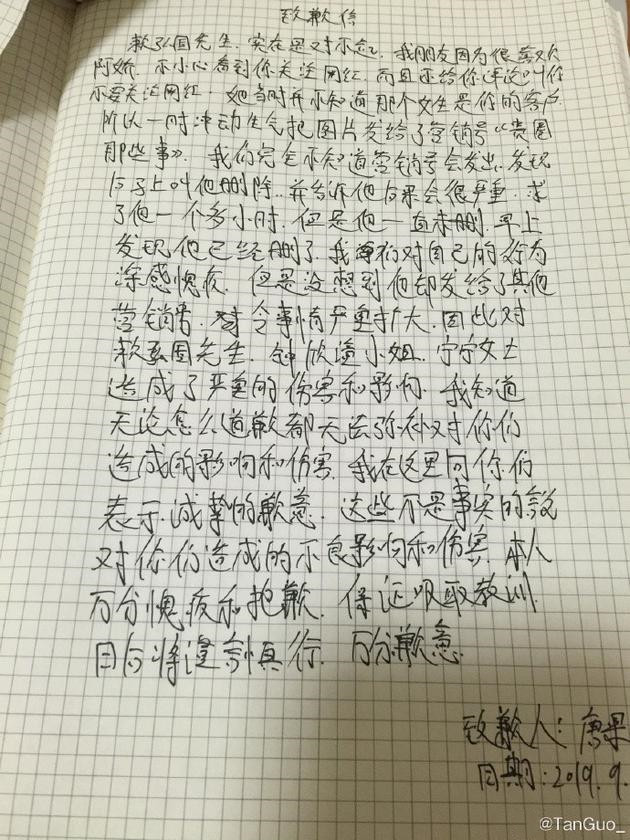 致歉信
赖弘国先生. 实在是对不起. 我朋友因为很喜欢
阿娇. 不小心看到你关注网红. 而且还给你评论叫你
不要关注网红. 她当时并不知道那个女生是你的客户.
所以一时冲动生气把图片发给了营销号“贵圈
那些事》. 我们完全不知道营销号会发出. 发现
后马上叫他删除. 并告诉他后果会很严重. 求
了他一个多小时. 但是他一直未删. 早上
发现他已经删了. 我们对自己的行为
深感愧疚. 但是没想到他却发给了其他
营销号. 令事情严重扩大. 因此对
赖弘国先生. 钟欣潼小姐. 宁宁女士
造成了严重的伤害和影响. 我知道
无论怎么道歉都无法弥补对你们
造成的影响和伤害. 我在这里向你们
表示诚挚的歉意. 这些不是事实的
对你们造成的不良影响和伤害. 本人
万分愧疚和抱歉. 保证吸取教训.
日后将谨言慎行. 万分歉意.
致歉人: 唐果
日期: 2019.9.
@TanGuo_